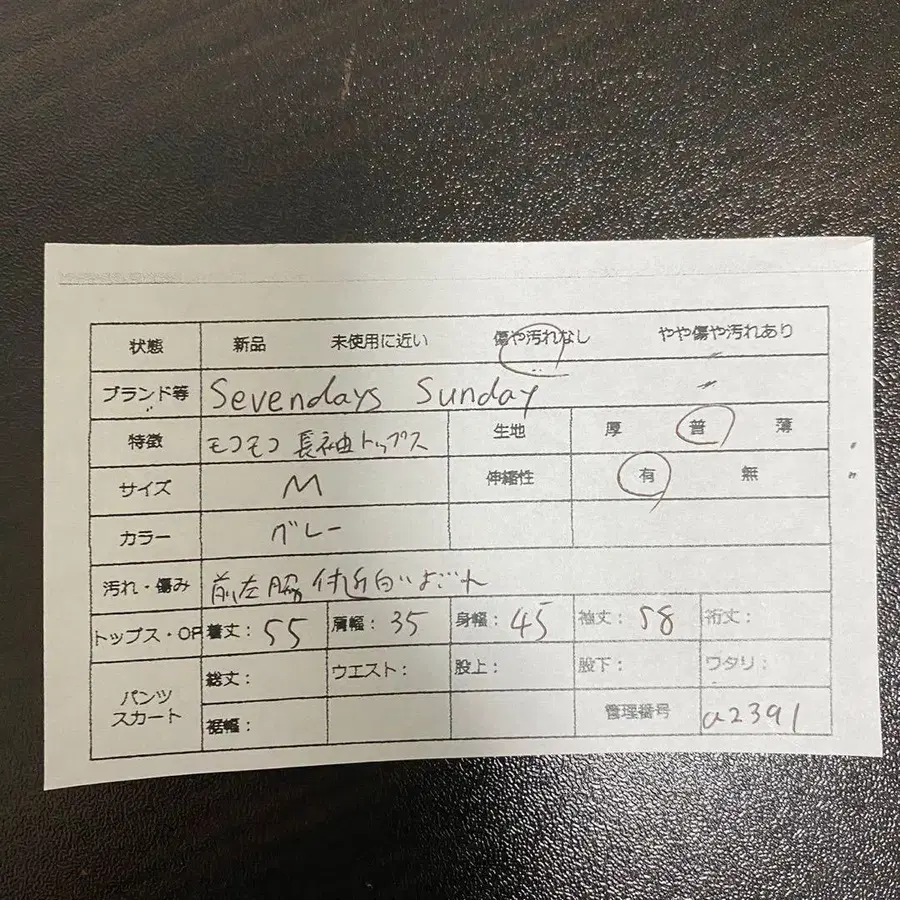 状態 新品 未使用に近い 傷や汚れなし やや傷や汚れあり
ブランド等 Sevendays Sunday
特徴 モコモコ 長袖トップス 生地 厚 普 薄
サイズ M 伸縮性 有 無
カラー グレー
汚れ・傷み 前左脇付近白いよごれ
トップス・OP 着丈: 55 肩幅: 35 身幅: 45 袖丈: 58 裄丈:
パンツ スカート 総丈: ウエスト: 股上: 股下: ワタリ:
裾幅: 管理番号 a2391